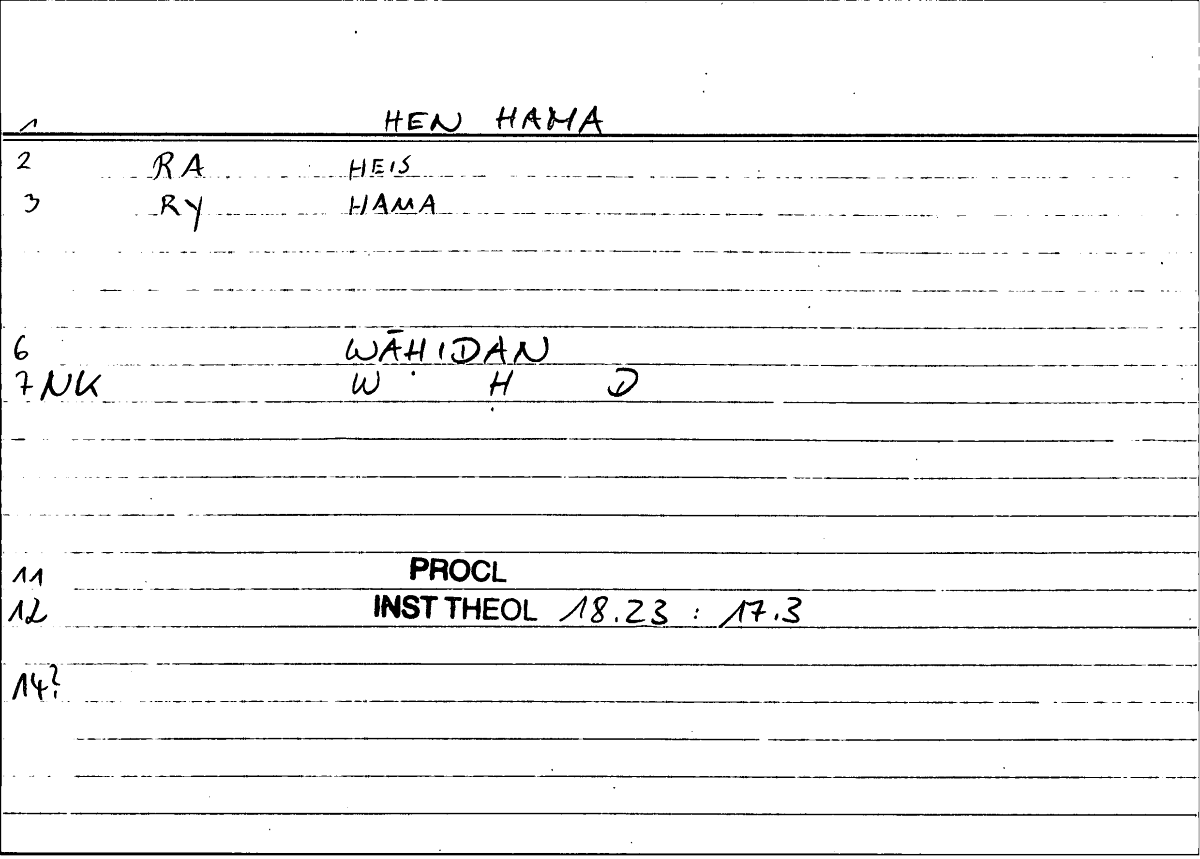 1 HEN HAMA
2 RA HEIS
3 RY HAMA
6 WĀHIDAN
7 NK W Ḥ D
11 PROCL
12 INST THEOL 18.23 : 17.3
14?